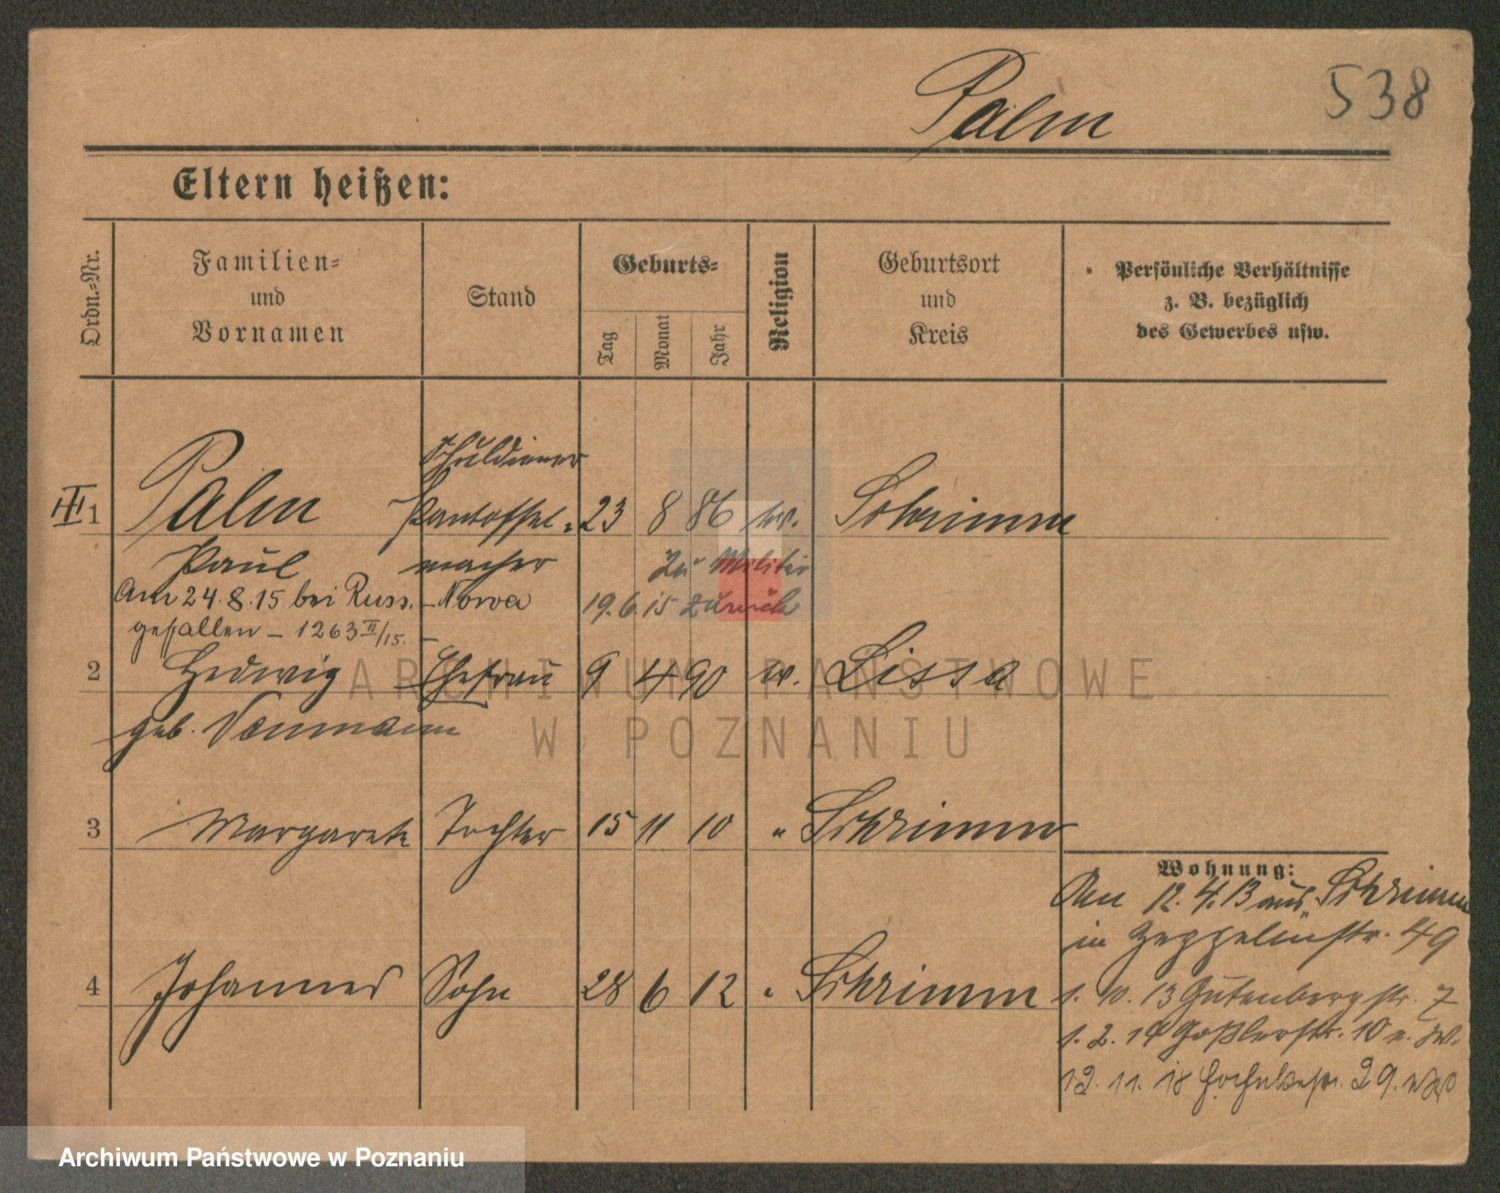 538
Palm
Eltern heißen:
Ordn.=Nr.
Familien=
und
Vornamen
Stand
Geburts=
Tag
Monat
Jahr
Religion
Geburtsort
und
Kreis
Persönliche Verhältnisse
z. B. bezüglich
des Gewerbes usw.
Schuldiener
1 Palm Pantoffel= 23 8 86 kv. Schrimm
Paul macher Zu Militär
Am 24.8.15 bei Russ.-Nowa 19.6.15 zurück
gefallen – 1263 II/15.
2 Hedwig Ehefrau 9 4 90 kv. Lissa
geb. Naumann
3 Margarete Tochter 15 11 10 " Schrimm
4 Johannes Sohn 28 6 12 " Schrimm
Wohnung:
Am 12.4.13 aus Schrimm
in Zeppelinstr. 49
1.10.13 Gutenbergstr. 7
1.2.14 Goßlerstr. 10
12.11.18 29.
ARCHIWUM PAŃSTWOWE
W POZNANIU
Archiwum Państwowe w Poznaniu